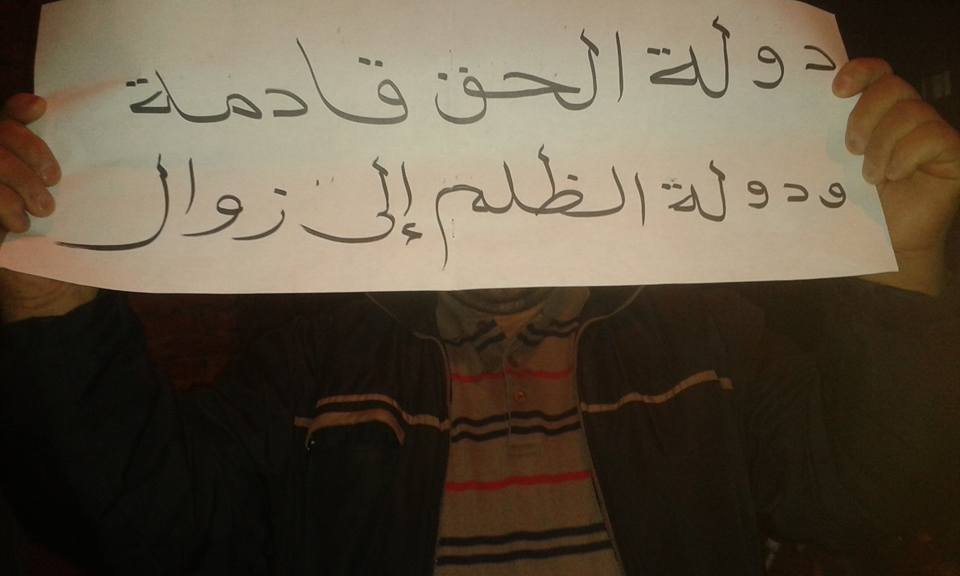 دولة الحق قادمة
ودولة الظلم إلى زوال